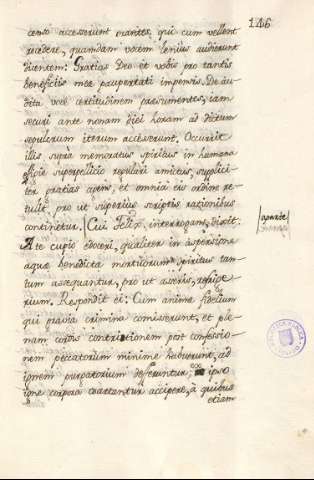 146
censo accesserunt orantes, qui cum vellent
recedere, quamdam vocem lenius audierunt
dicentem: Gratias Deo et vobis pro tantis
beneficiis meæ paupertati impensis. De au-
dita voce certitudinem præsumentes, iam
securi ante nonam diei horam ad dictum
sepulcrum iterum accesserunt. Occurrit
illis supra memoratus spiritus in humana
effigie superpellicio regulari amictus, supplici-
ter gratias agens, et omnia eis ordine re-
tulit, pro ut superius scriptis rationibus
continetur. Cui Felix, interrogans, dixit:
A te cupio edoceri, qualiter in aspersione
aquæ benedictæ mortuorum spiritus tan-
tum assequantur, pro ut asseris, refrige-
rium. Respondit ei: Cum animæ fidelium
qui pravia crimina comiserunt, et ple-
nam cordis contritionem post confessio-
nem peccatorum minime habuerunt, ad
ignem purgatorium deferuntur; ipso
igne corpora coartantur accipere, à quibus
etiam
aperite